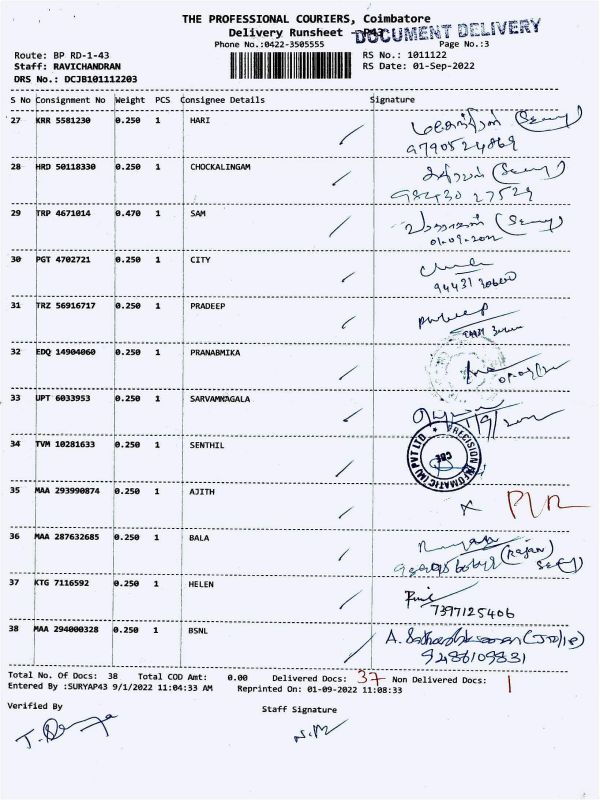 THE PROFESSIONAL COURIERS, Coimbatore
Delivery Runsheet - P43
DOCUMENT DELIVERY
Phone No.:0422-3505555 Page No.:3
Route: BP RD-1-43 RS No.: 1011122
Staff: RAVICHANDRAN RS Date: 01-Sep-2022
DRS No.: DCJB101112203
S No Consignment No Weight PCS Consignee Details Signature
27 KRR 5581230 0.250 1 HARI
9790524869
28 HRD 50118330 0.250 1 CHOCKALINGAM
98430 27529
29 TRP 4671014 0.470 1 SAM
01-09-2022
30 PGT 4702721 0.250 1 CITY
31 TRZ 56916717 0.250 1 PRADEEP
Pradeep
32 EDQ 14904060 0.250 1 PRANABMIKA
33 UPT 6033953 0.250 1 SARVAMMAGALA
1/9/2022
34 TVM 10281633 0.250 1 SENTHIL
PRECISION INFOMATIC (M) PVT LTD
CBE
35 MAA 293990874 0.250 1 AJITH
36 MAA 287632685 0.250 1 BALA
(Rajan)
37 KTG 7116592 0.250 1 HELEN
7397125406
38 MAA 294000328 0.250 1 BSNL
9486109831
Total No. Of Docs: 38 Total COD Amt: 0.00 Delivered Docs: 37 Non Delivered Docs: 1
Entered By :SURYAP43 9/1/2022 11:04:33 AM Reprinted On: 01-09-2022 11:08:33
Verified By Staff Signature